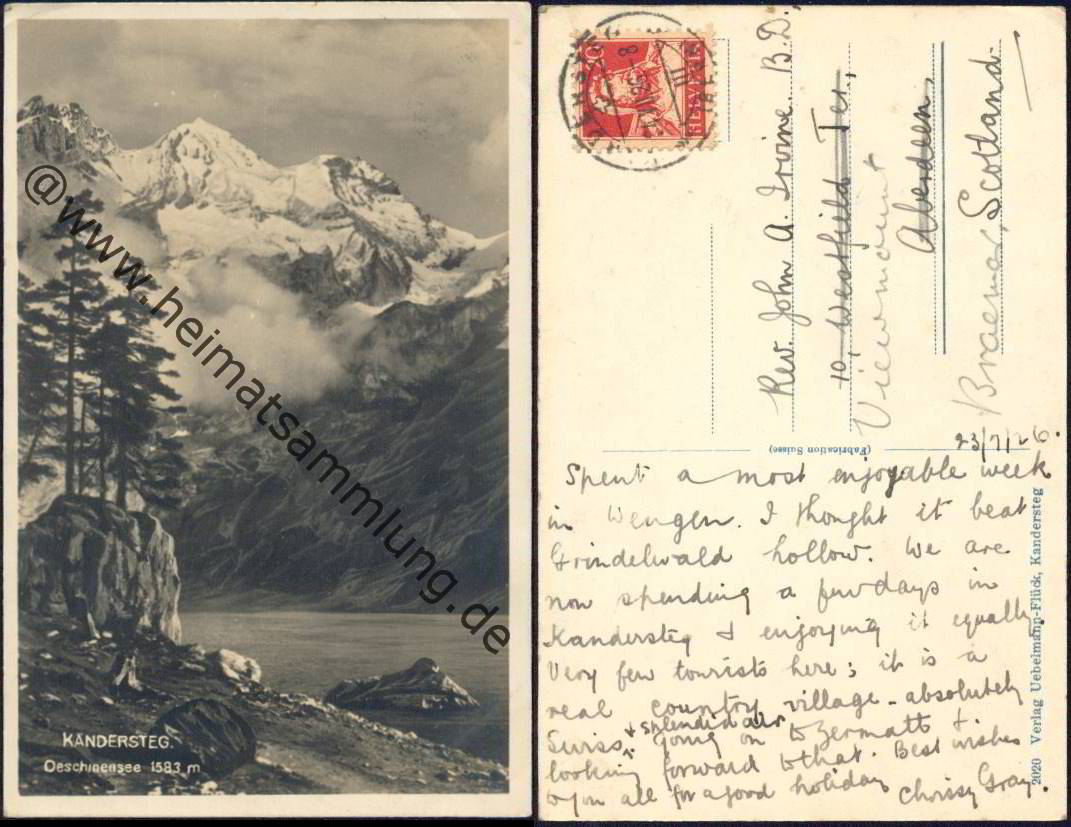 KANDERSTEG.
Oeschinensee 1583 m
@www.heimatsammlung.de
HELVETIA
Rev. John A. Irvine B.D.
10 Westfield Ter.,
Viewmount
Aberdeen,
Braemar, Scotland
(Fabrication Suisse)
2020 Verlag Uebelmann-Flück, Kandersteg
23/7/26.
Spent a most enjoyable week
in Wengen. I thought it beat
Grindelwald hollow. We are
now spending a few days in
Kandersteg & enjoying it equally
Very few tourists here; it is a
real country village - absolutely
& splendid air
Swiss. Going on to Zermatt &
looking forward to that. Best wishes
to you all for a good holiday Chrissy Gray.